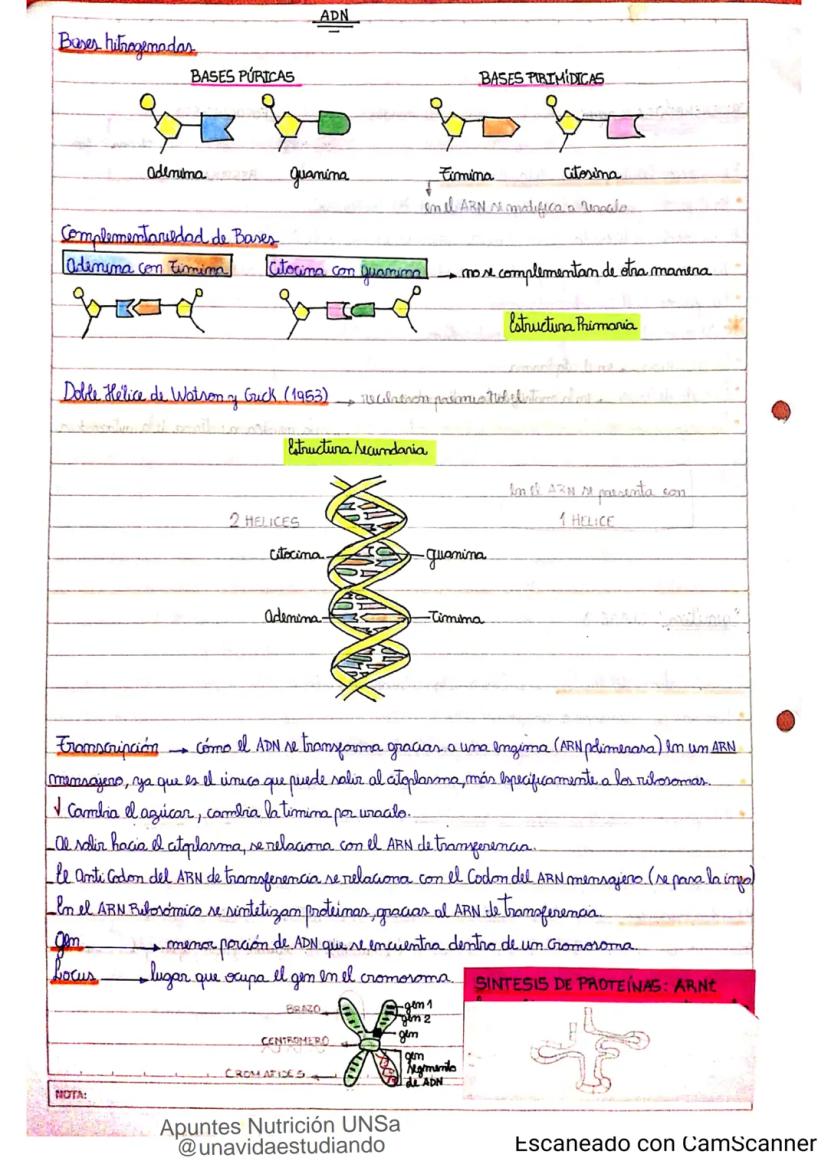 ADN
Bases nitrogenadas
BASES PÚRICAS
BASES PIRIMÍDICAS
Adenina
Guanina
Timina
Citosina
en el ARN se modifica a Uracilo
Complementariedad de Bases
Adenina con Timina
Citocina con guanina
→ no se complementan de otra manera
Estructura Primaria
Doble Hélice de Watson y Crick (1953) → recibieron premio Nobel
Estructura Secundaria
En el ARN se presenta con
1 HELICE
2 HELICES
Citocina
guanina
Adenina
Timina
Transcripción → cómo el ADN se transforma gracias a una enzima (ARN polimerasa) en un ARN
mensajero, ya que es el único que puede salir al citoplasma, más específicamente a los ribosomas.
↓ Cambia el azúcar, cambia la timina por uracilo.
Al salir hacia el citoplasma, se relaciona con el ARN de transferencia.
El Anti Codon del ARN de transferencia se relaciona con el Codon del ARN mensajero (se pasa la info)
En el ARN Ribosómico se sintetizan proteínas, gracias al ARN de transferencia.
Gen → menor porción de ADN que se encuentra dentro de un Cromosoma.
Locus → lugar que ocupa el gen en el cromosoma
SINTESIS DE PROTEÍNAS: ARNt
BRAZO
gen 1
gen 2
CENTROMERO
gen
gen
segmento
de ADN
CROMATIDES
NOTA:
Apuntes Nutrición UNSa
@unavidaestudiando
Escaneado con CamScanner